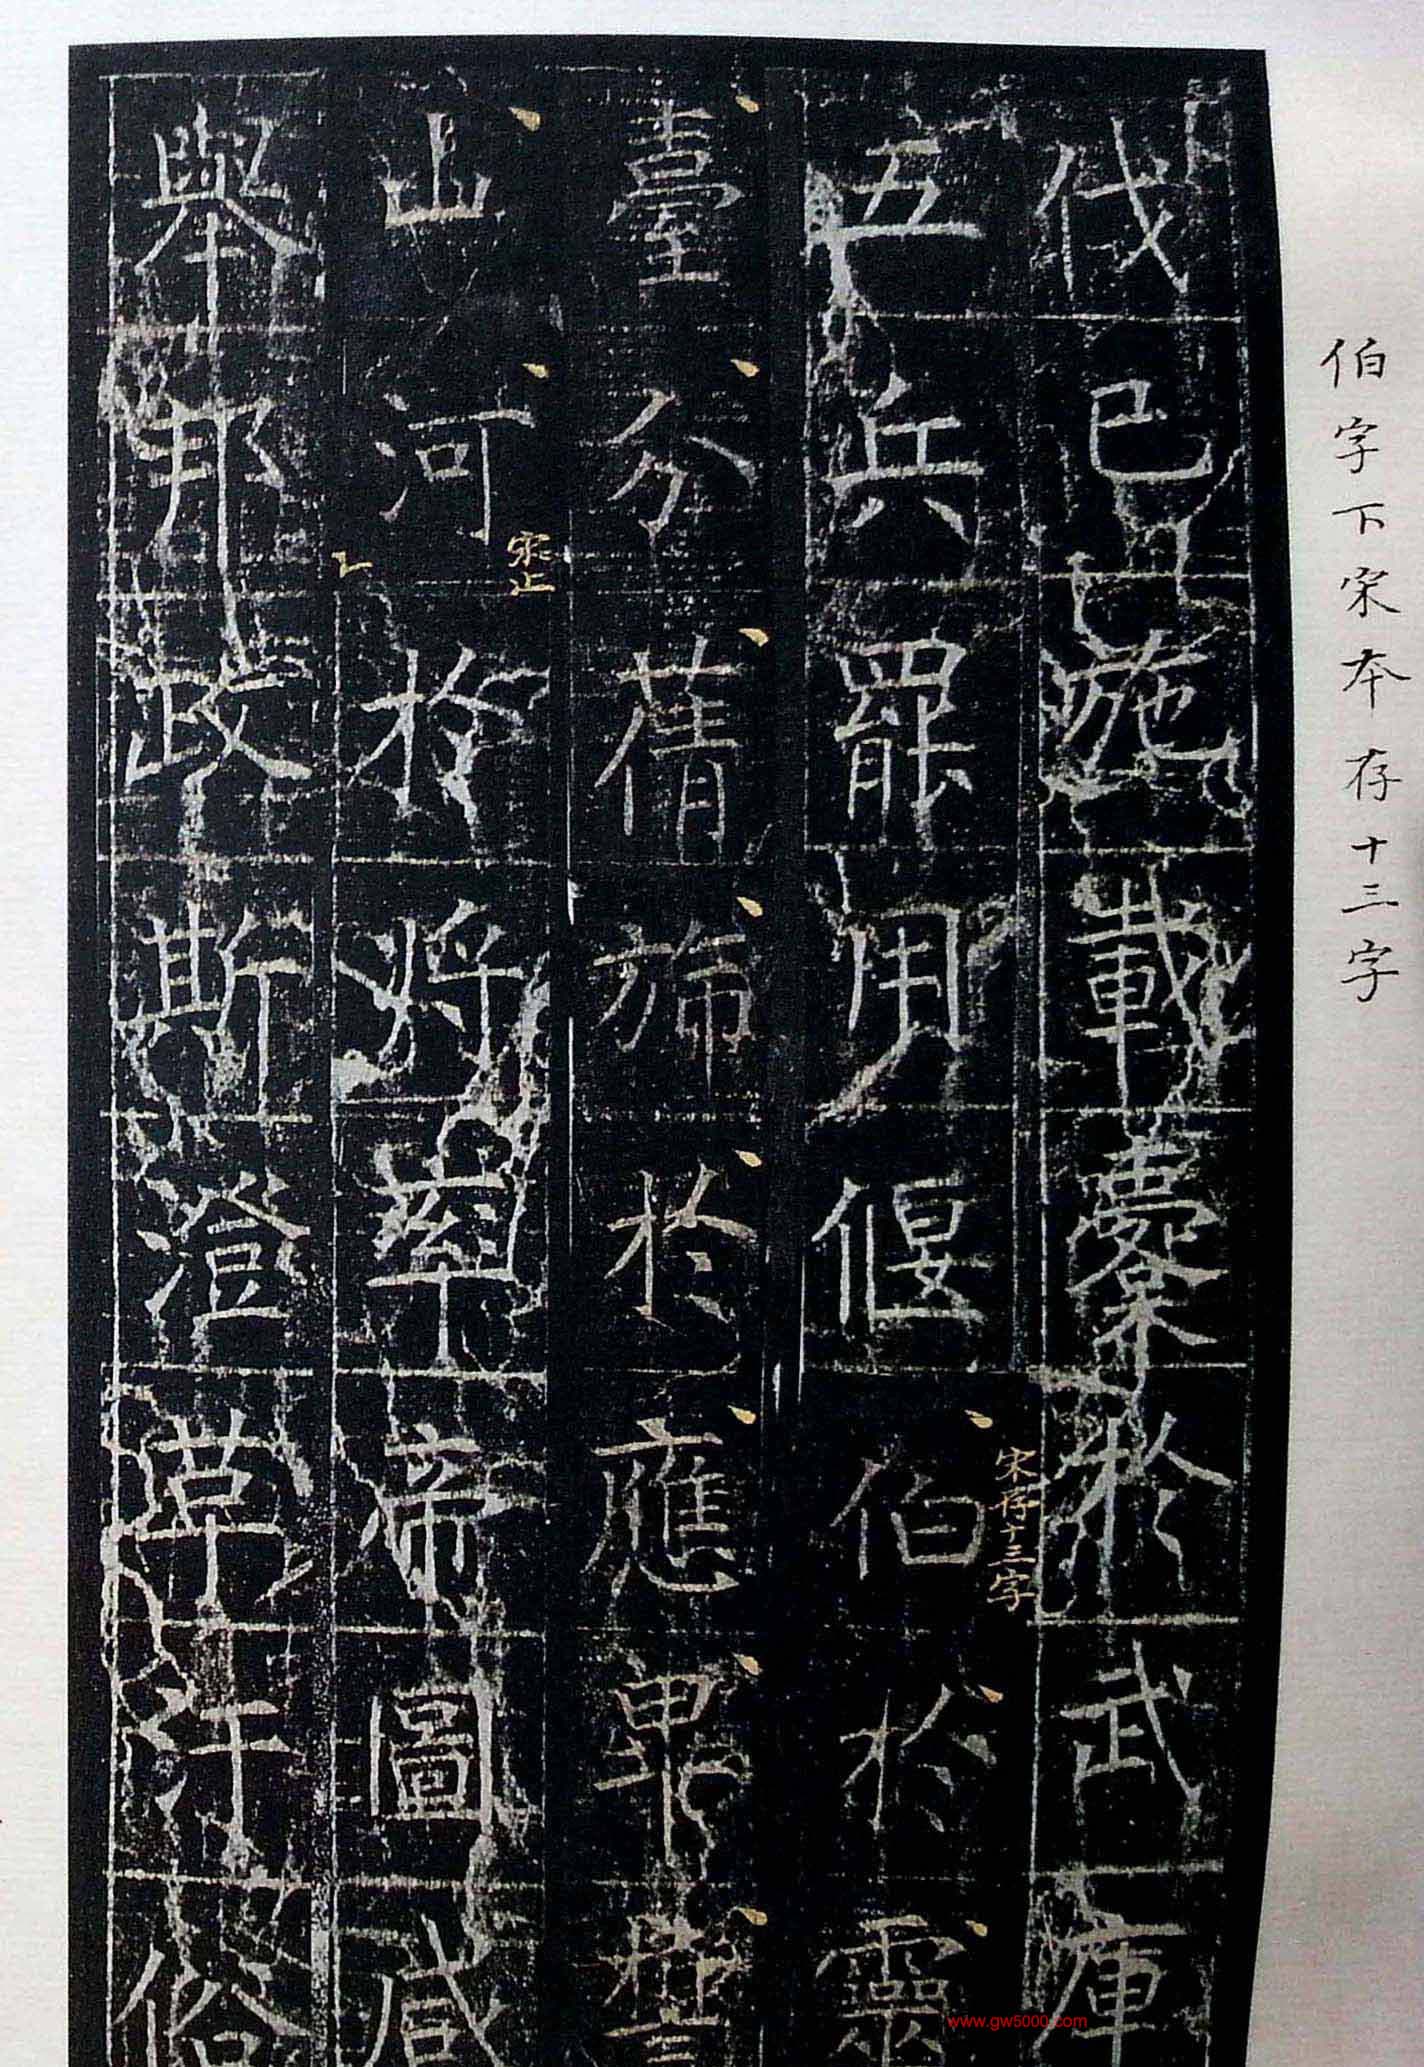 伯字下宋本存十三字
伐已施載櫜於武庫
五兵罷用偃伯於靈
宋存十三字
臺分蒨旆於應畢
山河於將率帝圖咸
宋止
舉邦政斯澄草汙俗
www.gw5000.com